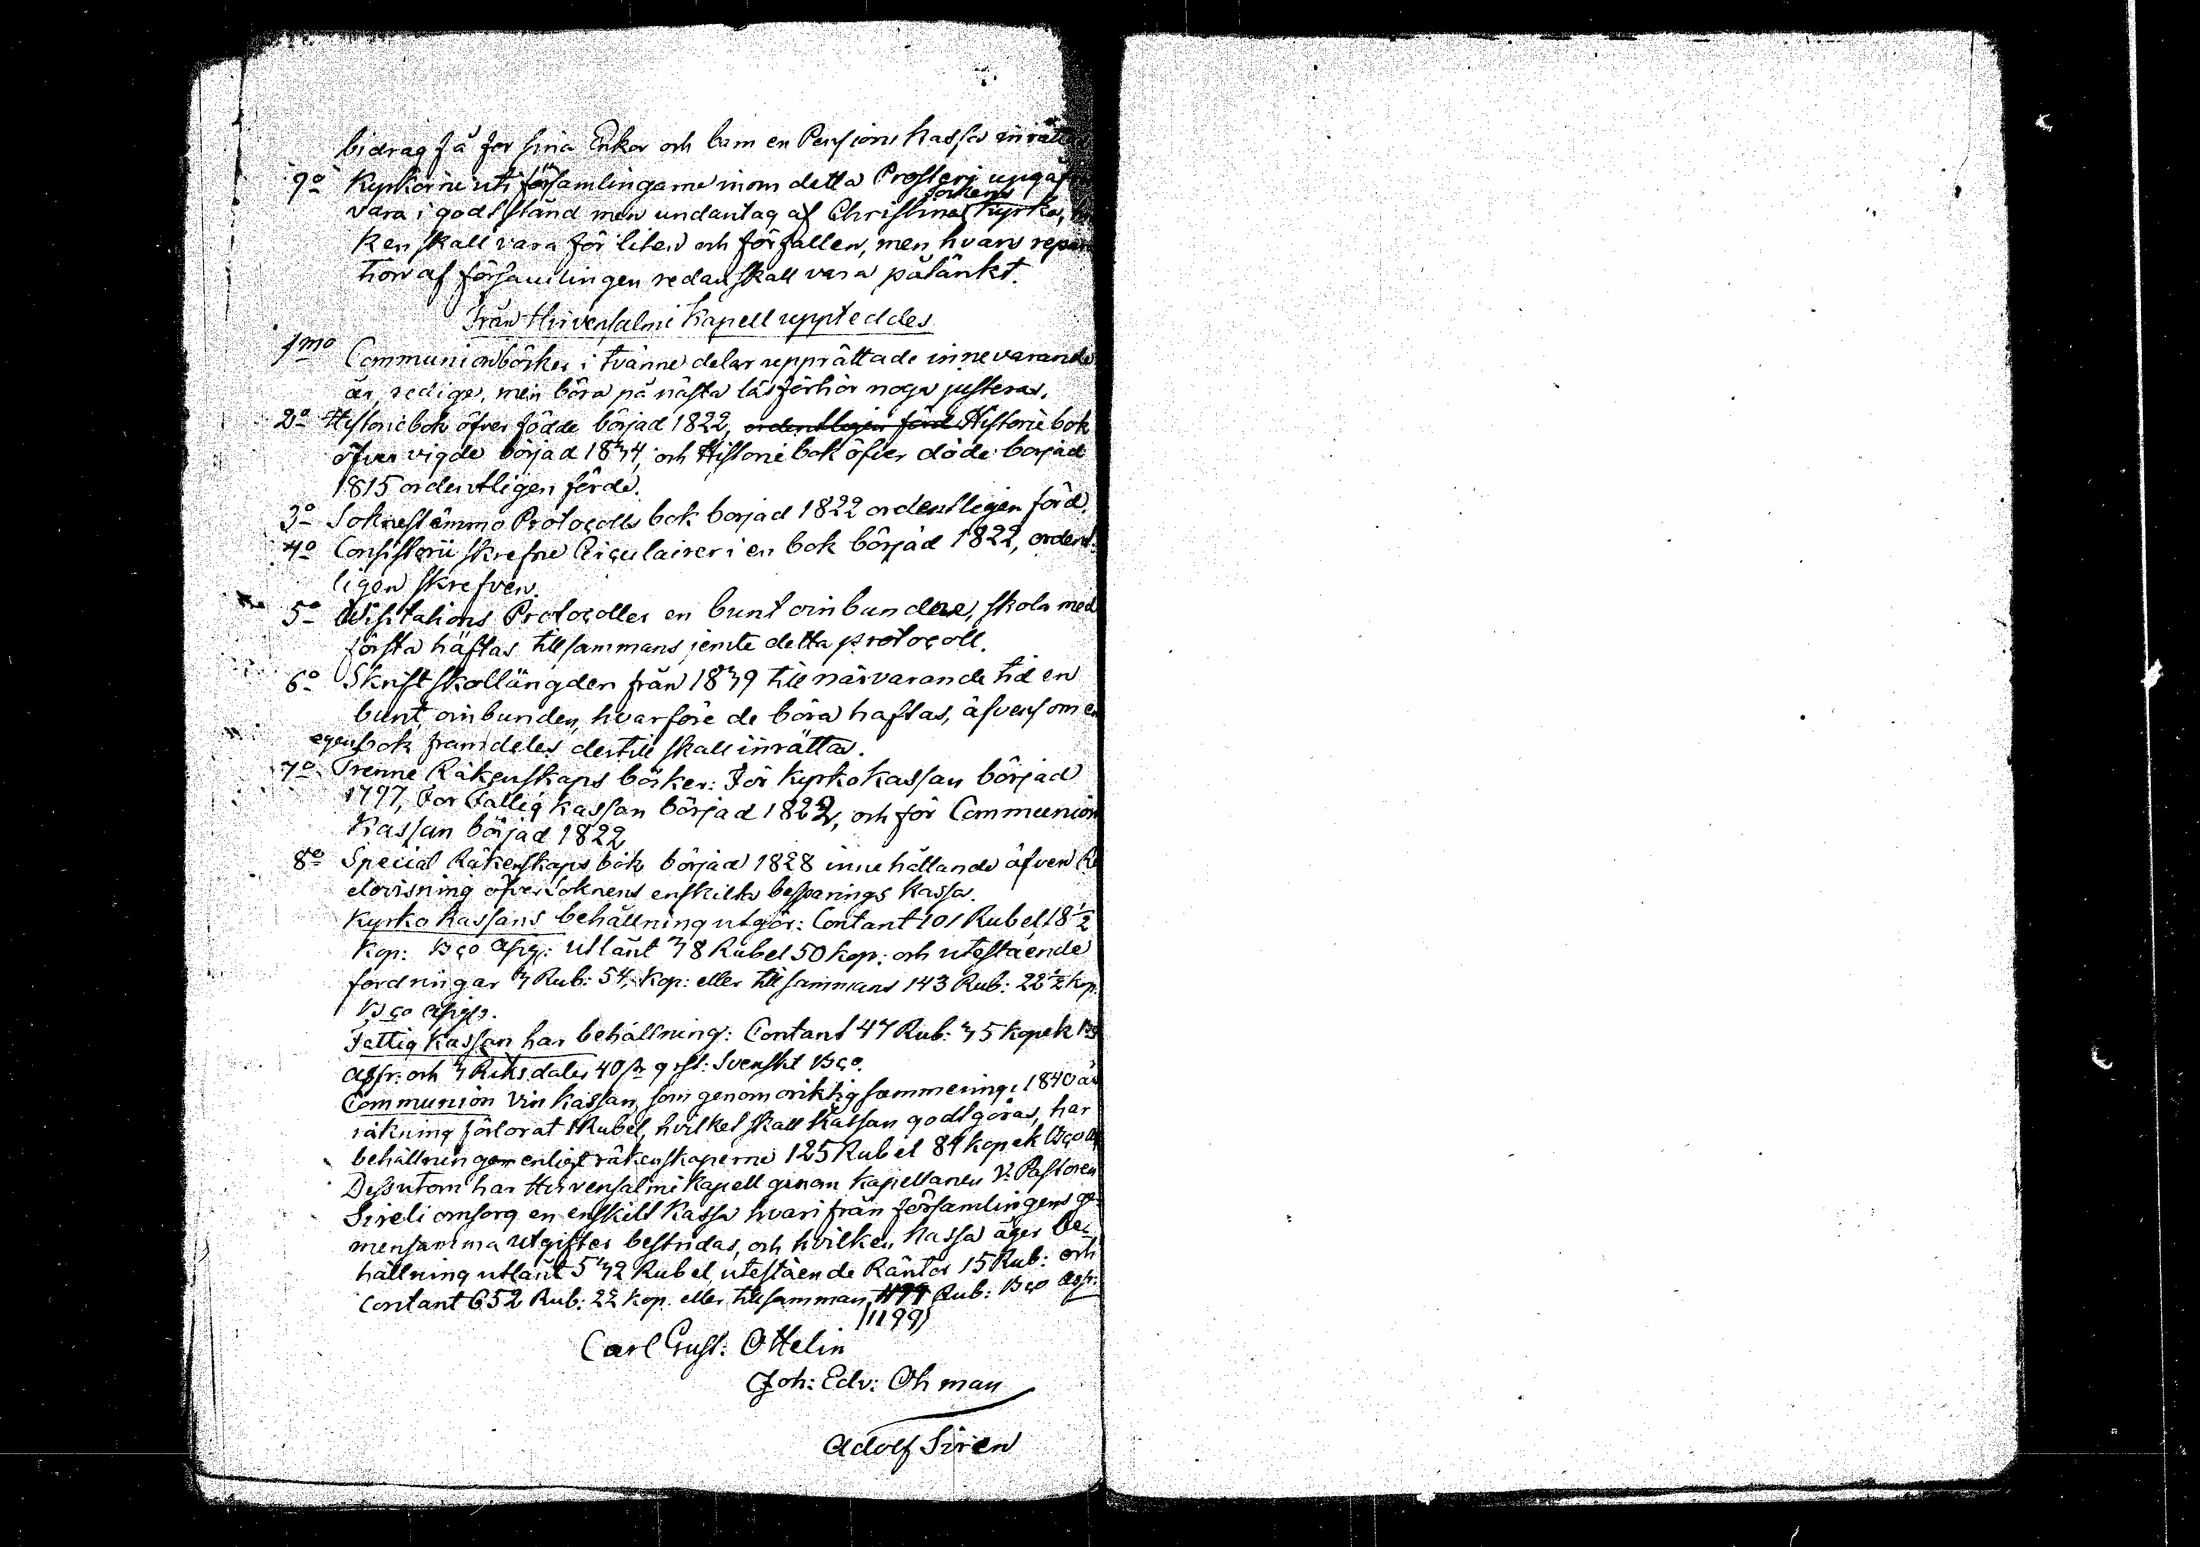 bidrag få för sina Enkor och barn en Pensions kassa inrätt
9o Kyrkorne uti församlingarne inom detta Prosteri uppgåfv
vara i godt stånd men undantag af Christina Sockens Kyrka,
ken skall vara för liten och förfallen, men hvars repara
tion af församlingen redan skall vara påtänkt.
Från Hirvensalmi Kapell uppteddes
1mo Communionböcker i tvänne delar upprättade innevarande
år, redige, men böra på nästa läsförhör noga justeras.
2o Historiebok öfver födde börjad 1822, ordentligen förd Historie bok
öfver vigde börjad 1834, och Historie bok öfver döde börjad
1815 ordentligen förde.
3o Soknestämmo Protocolls bok börjad 1822 ordentligen förd.
4o Consistorii skrefne Circulairer i en bok börjad 1822, ordent
ligen skrefven.
5o Visitations Protocoller en bunt oinbundne, skola med
första häftas tillsammans jemte detta protocoll.
6o Skriftskollängden från 1839 till närvarande tid en
bunt oinbunden, hvarföre de böra häftas, äfvensom en
egen bok framdeles dertill skall inrättas.
7o Trenne Räkenskaps böcker: För kyrkokassan börjad
1797, För Fattig kassan börjad 1822, och för Communion
Kassan börjad 1822
8o Special Räkenskaps bok börjad 1828 innehållande äfven Re
dovisning öfver Soknens enskilta besparings kassa.
Kyrko Kassans behållning utgör: Contant 101 Rubel 18 1/2
Kop: Bço Assg: utlånt 38 Rubel 50 Kop: och utestående
fordringar 3 Rub: 54 Kop: eller tillsammans 143 Rub: 22 1/2 Kop.
Bço Assgr.
Fattig Kassan har behållning: Contant 47 Rub: 35 Kopek Bço
Assgr: och 3 Riksdaler 40 sk 9 rst: Svenskt Bço.
Communion Vin Kassan, som genom oriktig summering i 1840 års
räkning förlorat 1 Rubel, hvilket skall Kassan godtgöras, har
behållningen enligt räkenskaperne 125 Rubel 84 kopek Bço As
Dessutom har Hirvensalmi Kapell genom Kapellanen V. Pastoren
Sireli omsorg en enskilt Kassa hvari från församlingens ge
mensamma utgifter bestridas, och hvilken kassa äger be-
hållning utlånt 532 Rubel, utestående Räntor 15 Rub: och
Contant 652 Rub: 22 Kop. eller tillsamman 1199 Rub: Bço Assgr:
(1199)
Carl Gust: Ottelin
Joh: Edv: Öhman
Adolf Siren